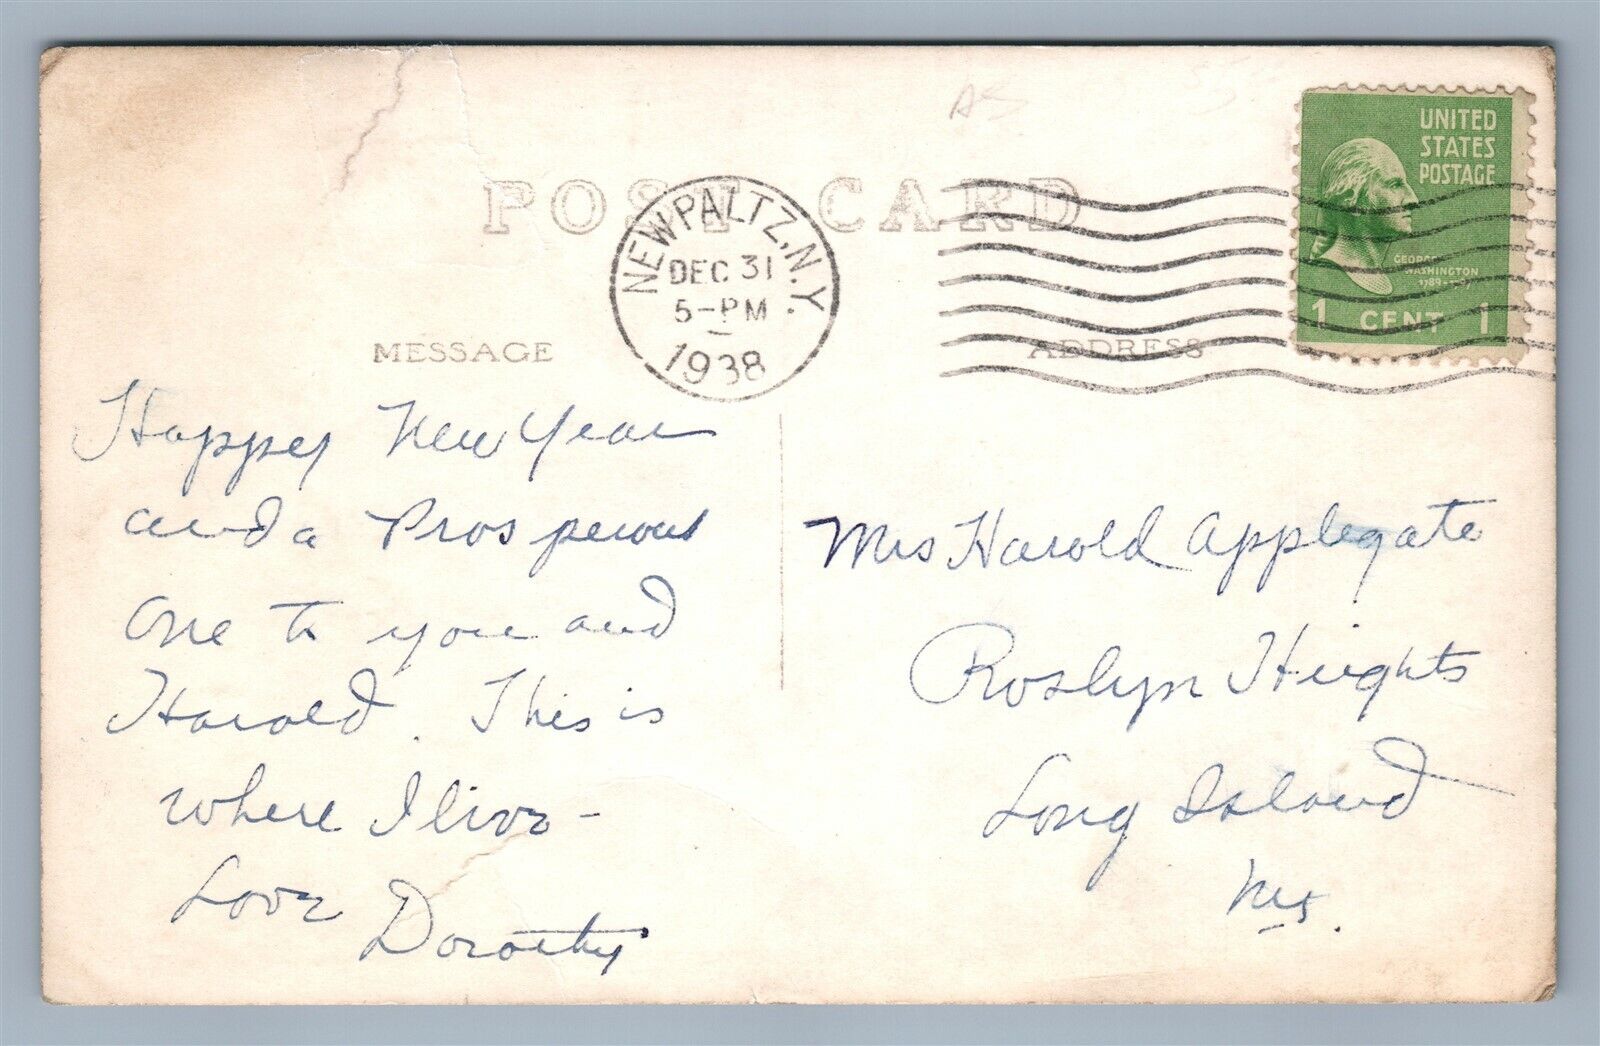 POST CARD
NEW PALTZ, N.Y.
DEC 31
5-PM
1938
UNITED
STATES
POSTAGE
GEORGE
WASHINGTON
1 CENT 1
MESSAGE
ADDRESS
Happy New Year
and a Prosperous
one to you and
Harold. This is
where I live -
Love
Dorothy
Mrs Harold Applegate
Roslyn Heights
Long Island
N.Y.